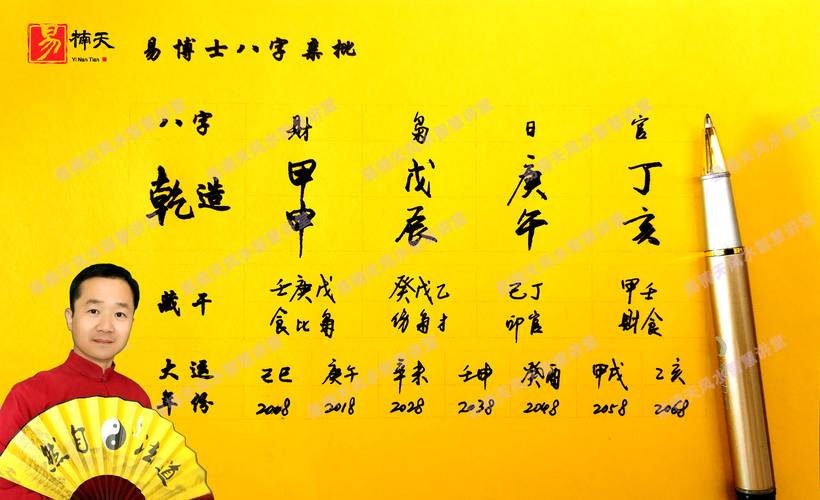 易 楠天
Yi Nan Tian
易博士八字亲批
八字 財 枭 日 官
乾造 甲申 戊辰 庚午 丁亥
藏干 壬庚戊 癸戊乙 己丁 甲壬
食比枭 伤枭才 印官 财食
大运 己巳 庚午 辛未 壬申 癸酉 甲戌 乙亥
年份 2008 2018 2028 2038 2048 2058 2068
然自法道
易楠天风水智慧讲堂